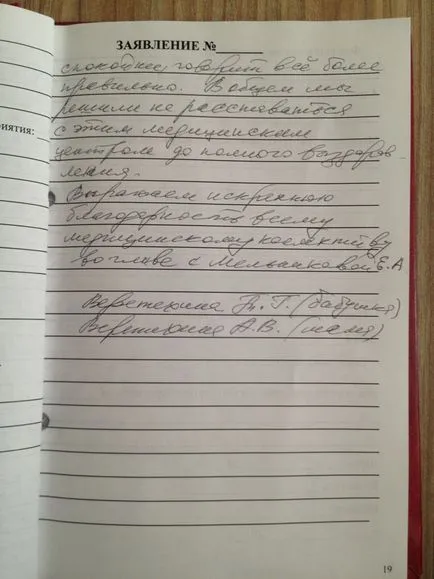 ЗАЯВЛЕНИЕ №
спокойнее, говорит всё более
правильно. В общем мы
решили не расставаться
с этим медицинским
центром до полного выздоров
ления.
Выражаем искреннюю
благодарность всему
медицинскому коллективу
во главе с Мельниковой Е.А
(бабушка)
А.В. (мама)
риятия:
19